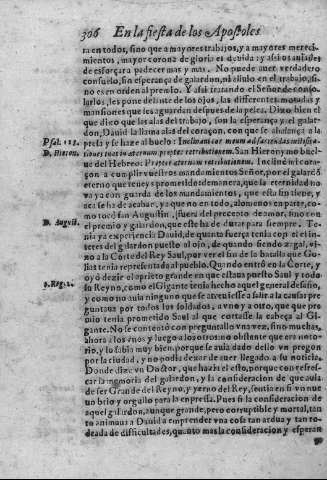 306 En la fiesta de los Apostoles
ra en todos, sino que a mayores trabajos, y a mayores mereci-
mientos, mayor corona de gloria es deuida: y assi os aulades
de esforçar a padecer mas y mas. No puede auer verdadero
consuelo, sin esperança de galardon, ni aliuio en el trabajo, si-
no es en orden al premio. Y assi tratando el Señor de conso-
larlos, les pone delante de los ojos, las differentes moradas y
mansiones que les aguardan despues de la pelea. Dizo bien el
que dixo que las alas del trabajo, son la esperança y el galar-
don, Dauid la llama alas del coraçon, con que se abalança a la
Psal. 118. presa y se haze al buelo: Inclinaui cor meum ad faciendas iustifica-
D. Hieron. tiones tuas in æternum propter retributionem. San Hieronymo buel-
ue del Hebreo: Propter æternam retributionem. Incliné mi cora-
çon a cumplir vuestros mandamientos Señor, por el galardõ
eterno que teneys prometido de manera, que la eternidad no
va ya con guarda de los mandamientos, que esta fin tiene, y
aca se ha de acabar, ya que no en todo, alomenos en parte, co-
D. August. mo tocò san Augustin, fuera del precepto de amor, sino con
el premio y galardon, que este ha de durar para siempre. Te-
nia ya experiencia Dauid, de quanta fuerça tenia con el in-
teres del galardon puesto al ojo, de quando siendo zagal, vi-
no a la Corte del Rey Saul, por ver el fin de la batalla que Go-
lias tenia representada al pueblo. Quando entrò en la Corte, y
oyó dezir el aprieto grande en que estaua puesto Saul y todo
1. Reg. 17. su Reyno, como el Gigante tenia hecho aquel general desafio,
y como no auia ninguno que se atreuiesse a salir a la causa: pre
guntaua por todos los soldados, a vno y a otro, que que pre
mio tenia prometido Saul al que cortasse la cabeça al Gi-
gante. No se contentò con preguntallo vna vez, sino muchas,
ahora a los vnos y luego a los otros: no obstante que era noto-
rio, y lo sabia muy bien, porque se auia dado dello vn pregon
por la ciudad, y no podia dexar de auer llegado a su noticia.
Donde dize vn Doctor, que hazia el esto, porque con refres-
car la memoria del galardon, y la consideracion de que auia
de ser Grande del Reyno, y yerno del Rey, sentia en si vn nue
uo brio y orgullo para la empressa. Pues si la consideracion de
aquel galardon, aunque grande, pero corruptible y mortal, tan
to animaua a Dauid a emprender vna cosa tan ardua y tan ro-
deada de difficultades, quanto mas la consideracion y esperan